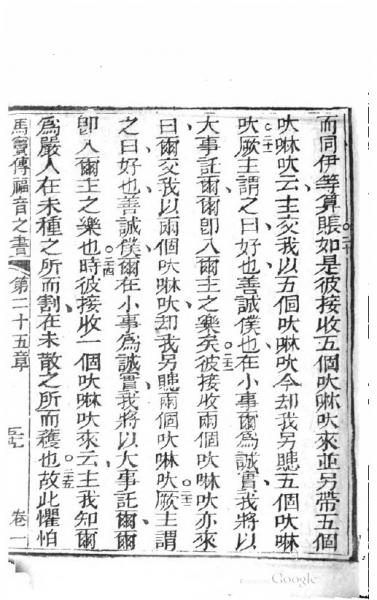 而同伊等算賬如是彼接收五個呔啉呔來並另帶五個
呔啉呔云主交我以五個呔啉呔今却我另賺五個呔啉
呔厥主謂之曰好也善誠僕也在小事爾爲誠實我將以
大事託爾爾即入爾主之樂矣彼接收兩個呔啉呔亦來
曰爾交我以兩個呔啉呔却我另賺兩個呔啉呔厥主謂
之曰好也善誠僕爾在小事爲誠實我將以大事託爾爾
即入爾主之樂也時彼接收一個呔啉呔來云主我知爾
爲嚴人在未種之所而割在未散之所而穫也故此懼怕
馬竇傳福音之書 第二十五章 卷一
Google